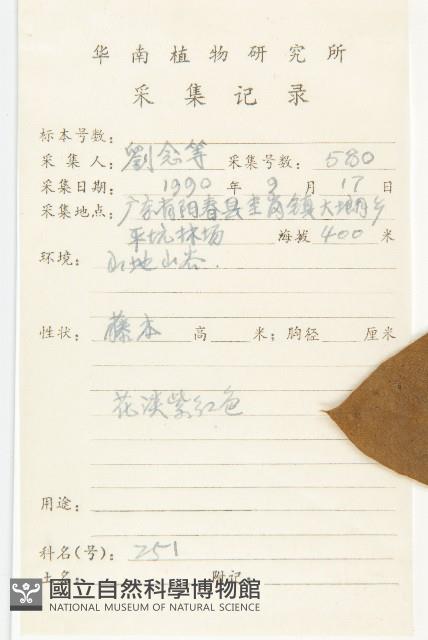 华南植物研究所
采集记录
标本号数:
采集人: 劉念等 采集号数: 580
采集日期: 1990 年 9 月 17 日
采集地点: 广东省阳春县圭岗镇大 乡
平坑林场 海拔 400 米
环境: 山地山谷.
性状: 藤本 高 米; 胸径 厘米
花淡紫红色
用途:
科名(号): 251
土名: 附记
國立自然科學博物館
NATIONAL MUSEUM OF NATURAL SCIENCE